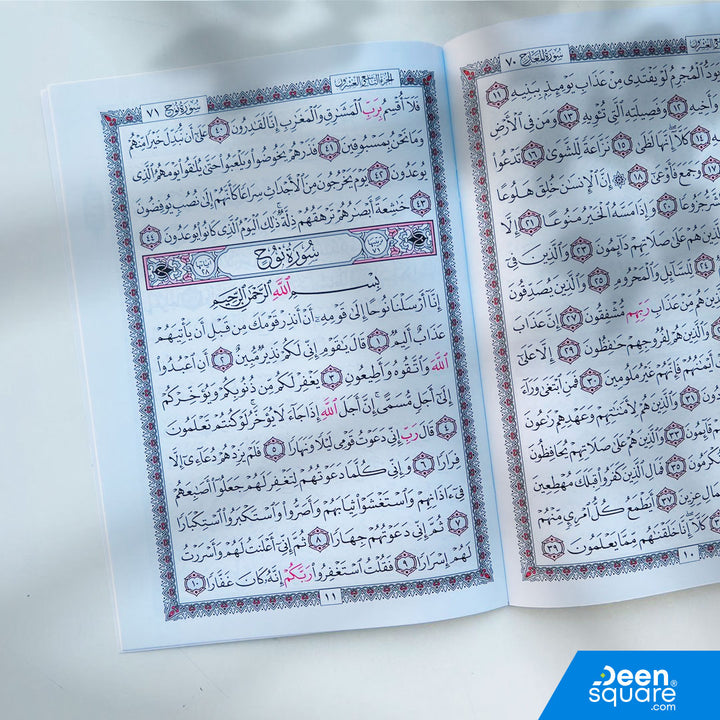 سورة المعارج ٧٠
يَوَدُّ ٱلْمُجْرِمُ لَوْ يَفْتَدِى مِنْ عَذَابِ يَوْمِئِذٍۭ بِبَنِيهِ ١١
وَأَخِيهِ ١٢ وَفَصِيلَتِهِ ٱلَّتِى تُـْٔوِيهِ ١٣ وَمَن فِى ٱلْأَرْضِ
١٤ كَلَّآ إِنَّهَا لَظَىٰ ١٥ نَزَّاعَةً لِّلشَّوَىٰ ١٦ تَدْعُوا۟
١٧ وَجَمَعَ فَأَوْعَىٰٓ ١٨ ۞ إِنَّ ٱلْإِنسَٰنَ خُلِقَ هَلُوعًا
ٱلشَّرُّ جَزُوعًا ٢٠ وَإِذَا مَسَّهُ ٱلْخَيْرُ مَنُوعًا ٢١ إِلَّا
ٱلَّذِينَ هُمْ عَلَىٰ صَلَاتِهِمْ دَآئِمُونَ ٢٣ وَٱلَّذِينَ فِىٓ
٢٤ لِّلسَّآئِلِ وَٱلْمَحْرُومِ ٢٥ وَٱلَّذِينَ يُصَدِّقُونَ
وَٱلَّذِينَ هُم مِّنْ عَذَابِ رَبِّهِم مُّشْفِقُونَ ٢٧ إِنَّ عَذَابَ
وَٱلَّذِينَ هُمْ لِفُرُوجِهِمْ حَٰفِظُونَ ٢٩ إِلَّا عَلَىٰٓ
أَيْمَٰنُهُمْ فَإِنَّهُمْ غَيْرُ مَلُومِينَ ٣٠ فَمَنِ ٱبْتَغَىٰ وَرَآءَ
٣١ وَٱلَّذِينَ هُمْ لِأَمَٰنَٰتِهِمْ وَعَهْدِهِمْ رَٰعُونَ
قَآئِمُونَ ٣٣ وَٱلَّذِينَ هُمْ عَلَىٰ صَلَاتِهِمْ يُحَافِظُونَ
مُّكْرَمُونَ ٣٥ فَمَالِ ٱلَّذِينَ كَفَرُوا۟ قِبَلَكَ مُهْطِعِينَ
ٱلشِّمَالِ عِزِينَ ٣٧ أَيَطْمَعُ كُلُّ ٱمْرِئٍ مِّنْهُمْ
٣٨ كَلَّآ إِنَّا خَلَقْنَٰهُم مِّمَّا يَعْلَمُونَ ٣٩
١٠
الجزء التاسع والعشرون
سورة نوح ٧١
فَلَآ أُقْسِمُ بِرَبِّ ٱلْمَشَٰرِقِ وَٱلْمَغَٰرِبِ إِنَّا لَقَٰدِرُونَ ٤٠ عَلَىٰٓ أَن نُّبَدِّلَ خَيْرًا مِّنْهُمْ
وَمَا نَحْنُ بِمَسْبُوقِينَ ٤١ فَذَرْهُمْ يَخُوضُوا۟ وَيَلْعَبُوا۟ حَتَّىٰ يُلَٰقُوا۟ يَوْمَهُمُ ٱلَّذِى
يُوعَدُونَ ٤٢ يَوْمَ يَخْرُجُونَ مِنَ ٱلْأَجْدَاثِ سِرَاعًا كَأَنَّهُمْ إِلَىٰ نُصُبٍ يُوفِضُونَ
٤٣ خَٰشِعَةً أَبْصَٰرُهُمْ تَرْهَقُهُمْ ذِلَّةٌ ۚ ذَٰلِكَ ٱلْيَوْمُ ٱلَّذِى كَانُوا۟ يُوعَدُونَ ٤٤
سُورَةُ نُوحٍ
بِسْمِ ٱللَّهِ ٱلرَّحْمَٰنِ ٱلرَّحِيمِ
إِنَّآ أَرْسَلْنَا نُوحًا إِلَىٰ قَوْمِهِۦٓ أَنْ أَنذِرْ قَوْمَكَ مِن قَبْلِ أَن يَأْتِيَهُمْ
عَذَابٌ أَلِيمٌ ١ قَالَ يَٰقَوْمِ إِنِّى لَكُمْ نَذِيرٌ مُّبِينٌ ٢ أَنِ ٱعْبُدُوا۟
ٱللَّهَ وَٱتَّقُوهُ وَأَطِيعُونِ ٣ يَغْفِرْ لَكُم مِّن ذُنُوبِكُمْ وَيُؤَخِّرْكُمْ
إِلَىٰٓ أَجَلٍ مُّسَمًّى ۚ إِنَّ أَجَلَ ٱللَّهِ إِذَا جَآءَ لَا يُؤَخَّرُ ۖ لَوْ كُنتُمْ تَعْلَمُونَ
٤ قَالَ رَبِّ إِنِّى دَعَوْتُ قَوْمِى لَيْلًا وَنَهَارًا ٥ فَلَمْ يَزِدْهُمْ دُعَآءِىٓ إِلَّا
فِرَارًا ٦ وَإِنِّى كُلَّمَا دَعَوْتُهُمْ لِتَغْفِرَ لَهُمْ جَعَلُوٓا۟ أَصَٰبِعَهُمْ
فِىٓ ءَاذَانِهِمْ وَٱسْتَغْشَوْا۟ ثِيَابَهُمْ وَأَصَرُّوا۟ وَٱسْتَكْبَرُوا۟ ٱسْتِكْبَارًا
٧ ثُمَّ إِنِّى دَعَوْتُهُمْ جِهَارًا ٨ ثُمَّ إِنِّىٓ أَعْلَنتُ لَهُمْ وَأَسْرَرْتُ
لَهُمْ إِسْرَارًا ٩ فَقُلْتُ ٱسْتَغْفِرُوا۟ رَبَّكُمْ إِنَّهُۥ كَانَ غَفَّارًا ١٠
١١
Deen
square
.com